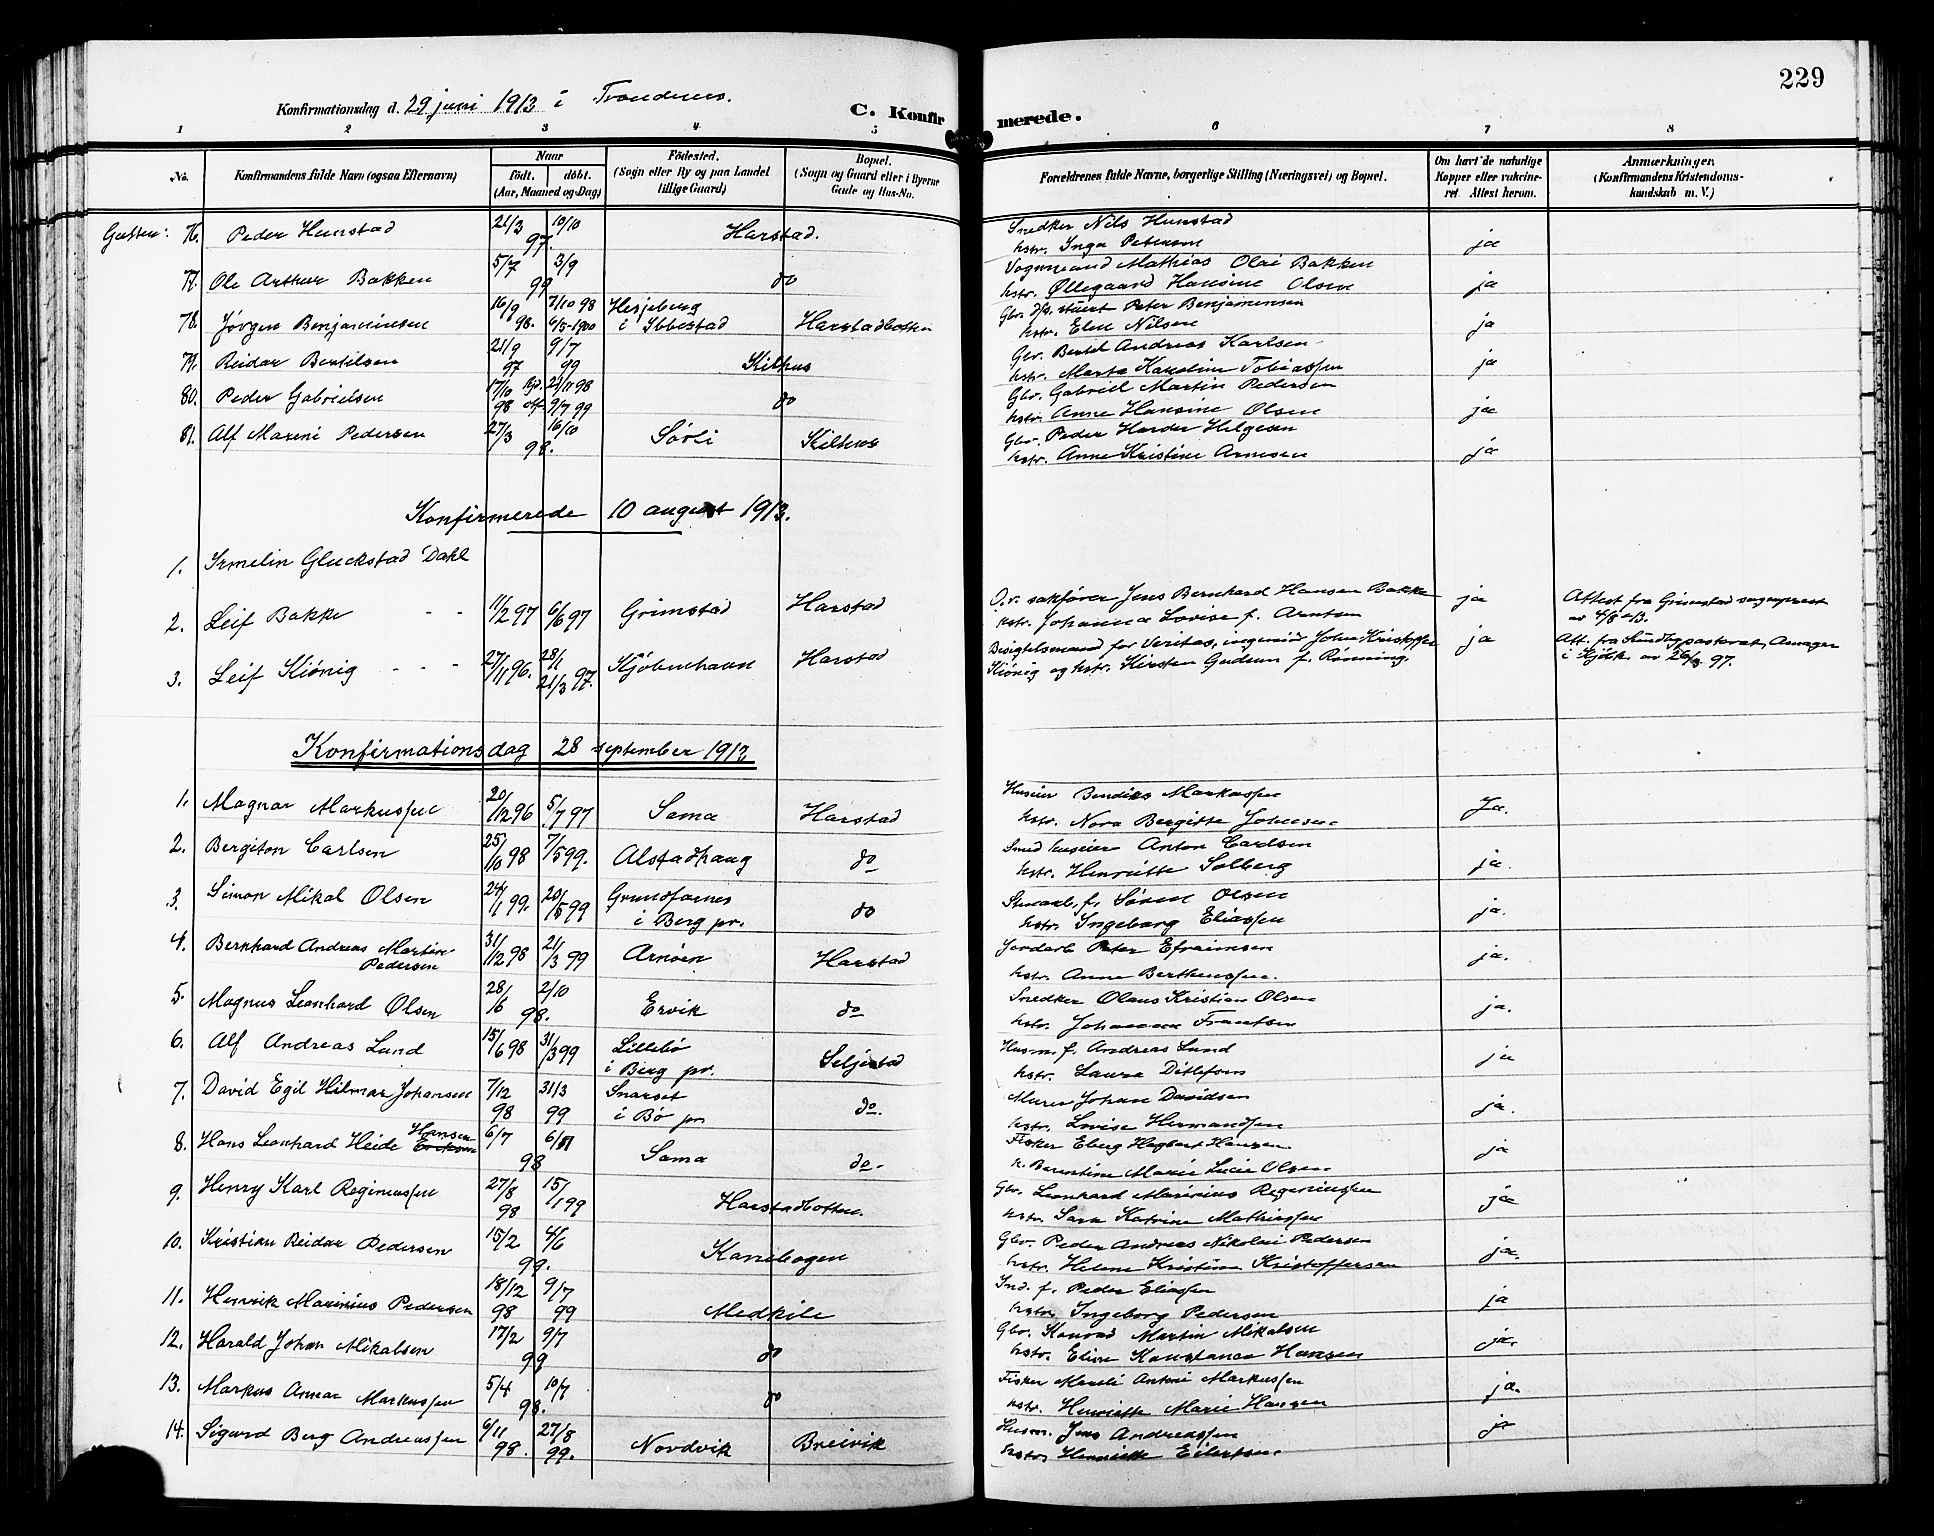 229
Konfirmationsdag d. 29 juni 1913 i Trondenes.
C. Konfirmerede.
1 2 3 4 5 6 7 8
No. Konfirmandens fulde Navn (ogsaa Efternavn) Naar født. døbt. (Aar, Maaned og Dag) Fødested. (Sogn eller By og paa Landet tillige Gaard) Bopæl. (Sogn og Gaard eller i Byerne Gade og Hus-No. Forældrenes fulde Navne, borgerlige Stilling (Næringsvei) og Bopæl. Om havt de naturlige Kopper eller vakcineret Attest herom. Anmærkninger. (Konfirmandens Kristendomskundskab m. V.)
Gutter: 76. Peder Hunstad 21/3 10/10 97. Harstad. Snedker Nils Hunstad
hstr. Inga Petersen ja
77. Ole Arthur Bakken 5/7 3/9 99 do Vognmand Mathias Olai Bakken
hstr. Øllegaard Hansine Olsen ja
78. Jørgen Benjaminsen 16/9 98. 7/10 98 6/5-1900 Hesjeberg i Ibbestad Harstadbotten Peter Benjaminsen
hstr. Elen Nilsen ja
79. Reidar Bertilsen 21/9 97 9/7 99 Kilhus Gbr. Bertel Andreas Karlsen
hstr. Marta Karoline Tobiassen ja
80. Peder Gabrielsen 17/10 98 Hjd. 22/11 98 9/7 99 do Gbr. Gabriel Martin Pedersen
hstr. Anne Hansine Olsen ja
81. Alf Mareni Pedersen 27/3 16/10 98. Sørli Kilhus Gbr. Peder Harder Helgesen
hstr. Anne Kristine Arnesen ja
Konfirmerede 10 august 1913.
1. Irmelin Gluckstad Dahl
2. Leif Bakke 11/2 97 6/6 97 Grimstad Harstad O.r. sakfører Jens Bernhard Hansen Bakke ja Attest fra Grimstad sogneprest
hstr. Johanna Lovise f. Arntsen av 4/8-13.
3. Leif Kiönig 27/11 96. 28/1 21/3 97. Kjøbenhavn Harstad Besigtelsesmand for Veritas, ingeniør John Kristoffer ja Att. fra Sundby pastorat, Amager
Kiönig og hstr. Kirsten Gudrun f. Rønning. i Kjöbh. av 97.
Konfirmationsdag 28 september 1913
1. Magnar Markussen 20/12 96 5/7 97 Sama Harstad Huseier Bendiks Markussen
hstr. Nora Bergitte Johnsen Ja.
2. Bergiton Carlsen 25/10 98 7/5 99. Alstadhaug do Smed huseier Anton Carlsen
hstr. Henriette Solberg ja.
3. Simon Mikal Olsen 24/1 99. 20/5 99 Grundfarnes i Berg pr. do Stenarb. f. Søren Olsen
hstr. Ingeborg Eliassen ja.
4. Bernhard Andreas Martin Pedersen 31/12 98 21/3 99 Arnøen Harstad Jordarb Peter Efraimsen
hstr. Anne Berthenssen. ja.
5. Magnus Leonhard Olsen 28/6 2/10 98. Ervik do Snedker Olaus Kristian Olsen
hstr. Johanna Frantsen ja.
6. Alf Andreas Lund 15/6 98 31/3 99 Lillebö i Berg pr. Seljestad Husm. f. Andreas Lund
hstr. Laura Ditlefsen ja
7. David Egil Hilmar Johansen 7/12 98 31/3 99 Snarset i Bö pr. do. Murer Johan Davidsen
hstr. Lovise Hermandsen ja.
8. Hans Leonhard Heide Hansen 6/7 6/11 98 Sama do. Fisker Eberg Hagbart Hansen
h. Berentine Marie Lucie Olsen ja
9. Henry Karl Reginiussen 27/8 98 15/1 99 Harstadbotten. Gbr. Leonhard Marinius Reginiussen
hstr. Sara Katrine Mathiassen ja
10. Kristian Reidar Pedersen 15/2 4/6 99. Kanebogen Gbr. Peder Andreas Nikolai Pedersen
hstr. Helene Kristine Kristoffersen ja.
11. Henrik Marinius Pedersen 18/12 98 9/7 99 Medkile Ind. f. Peder Eliassen
hstr. Ingeborg Pedersen ja
12. Harald Johan Mikalsen 17/2 9/7 99 do Gbr. Konrad Martin Mikalsen
hstr. Eline Konstance Hansen ja.
13. Markus Annar Markussen 5/4 10/7 98. do Fisker Meseli Antoni Markussen
hstr. Henriette Marie Hansen ja.
14. Sigurd Berg Andreassen 6/11 98. 27/8 99. Nordvik Breivik Husm. Jens Andreassen
hstr. Henriette Eilertsen. ja